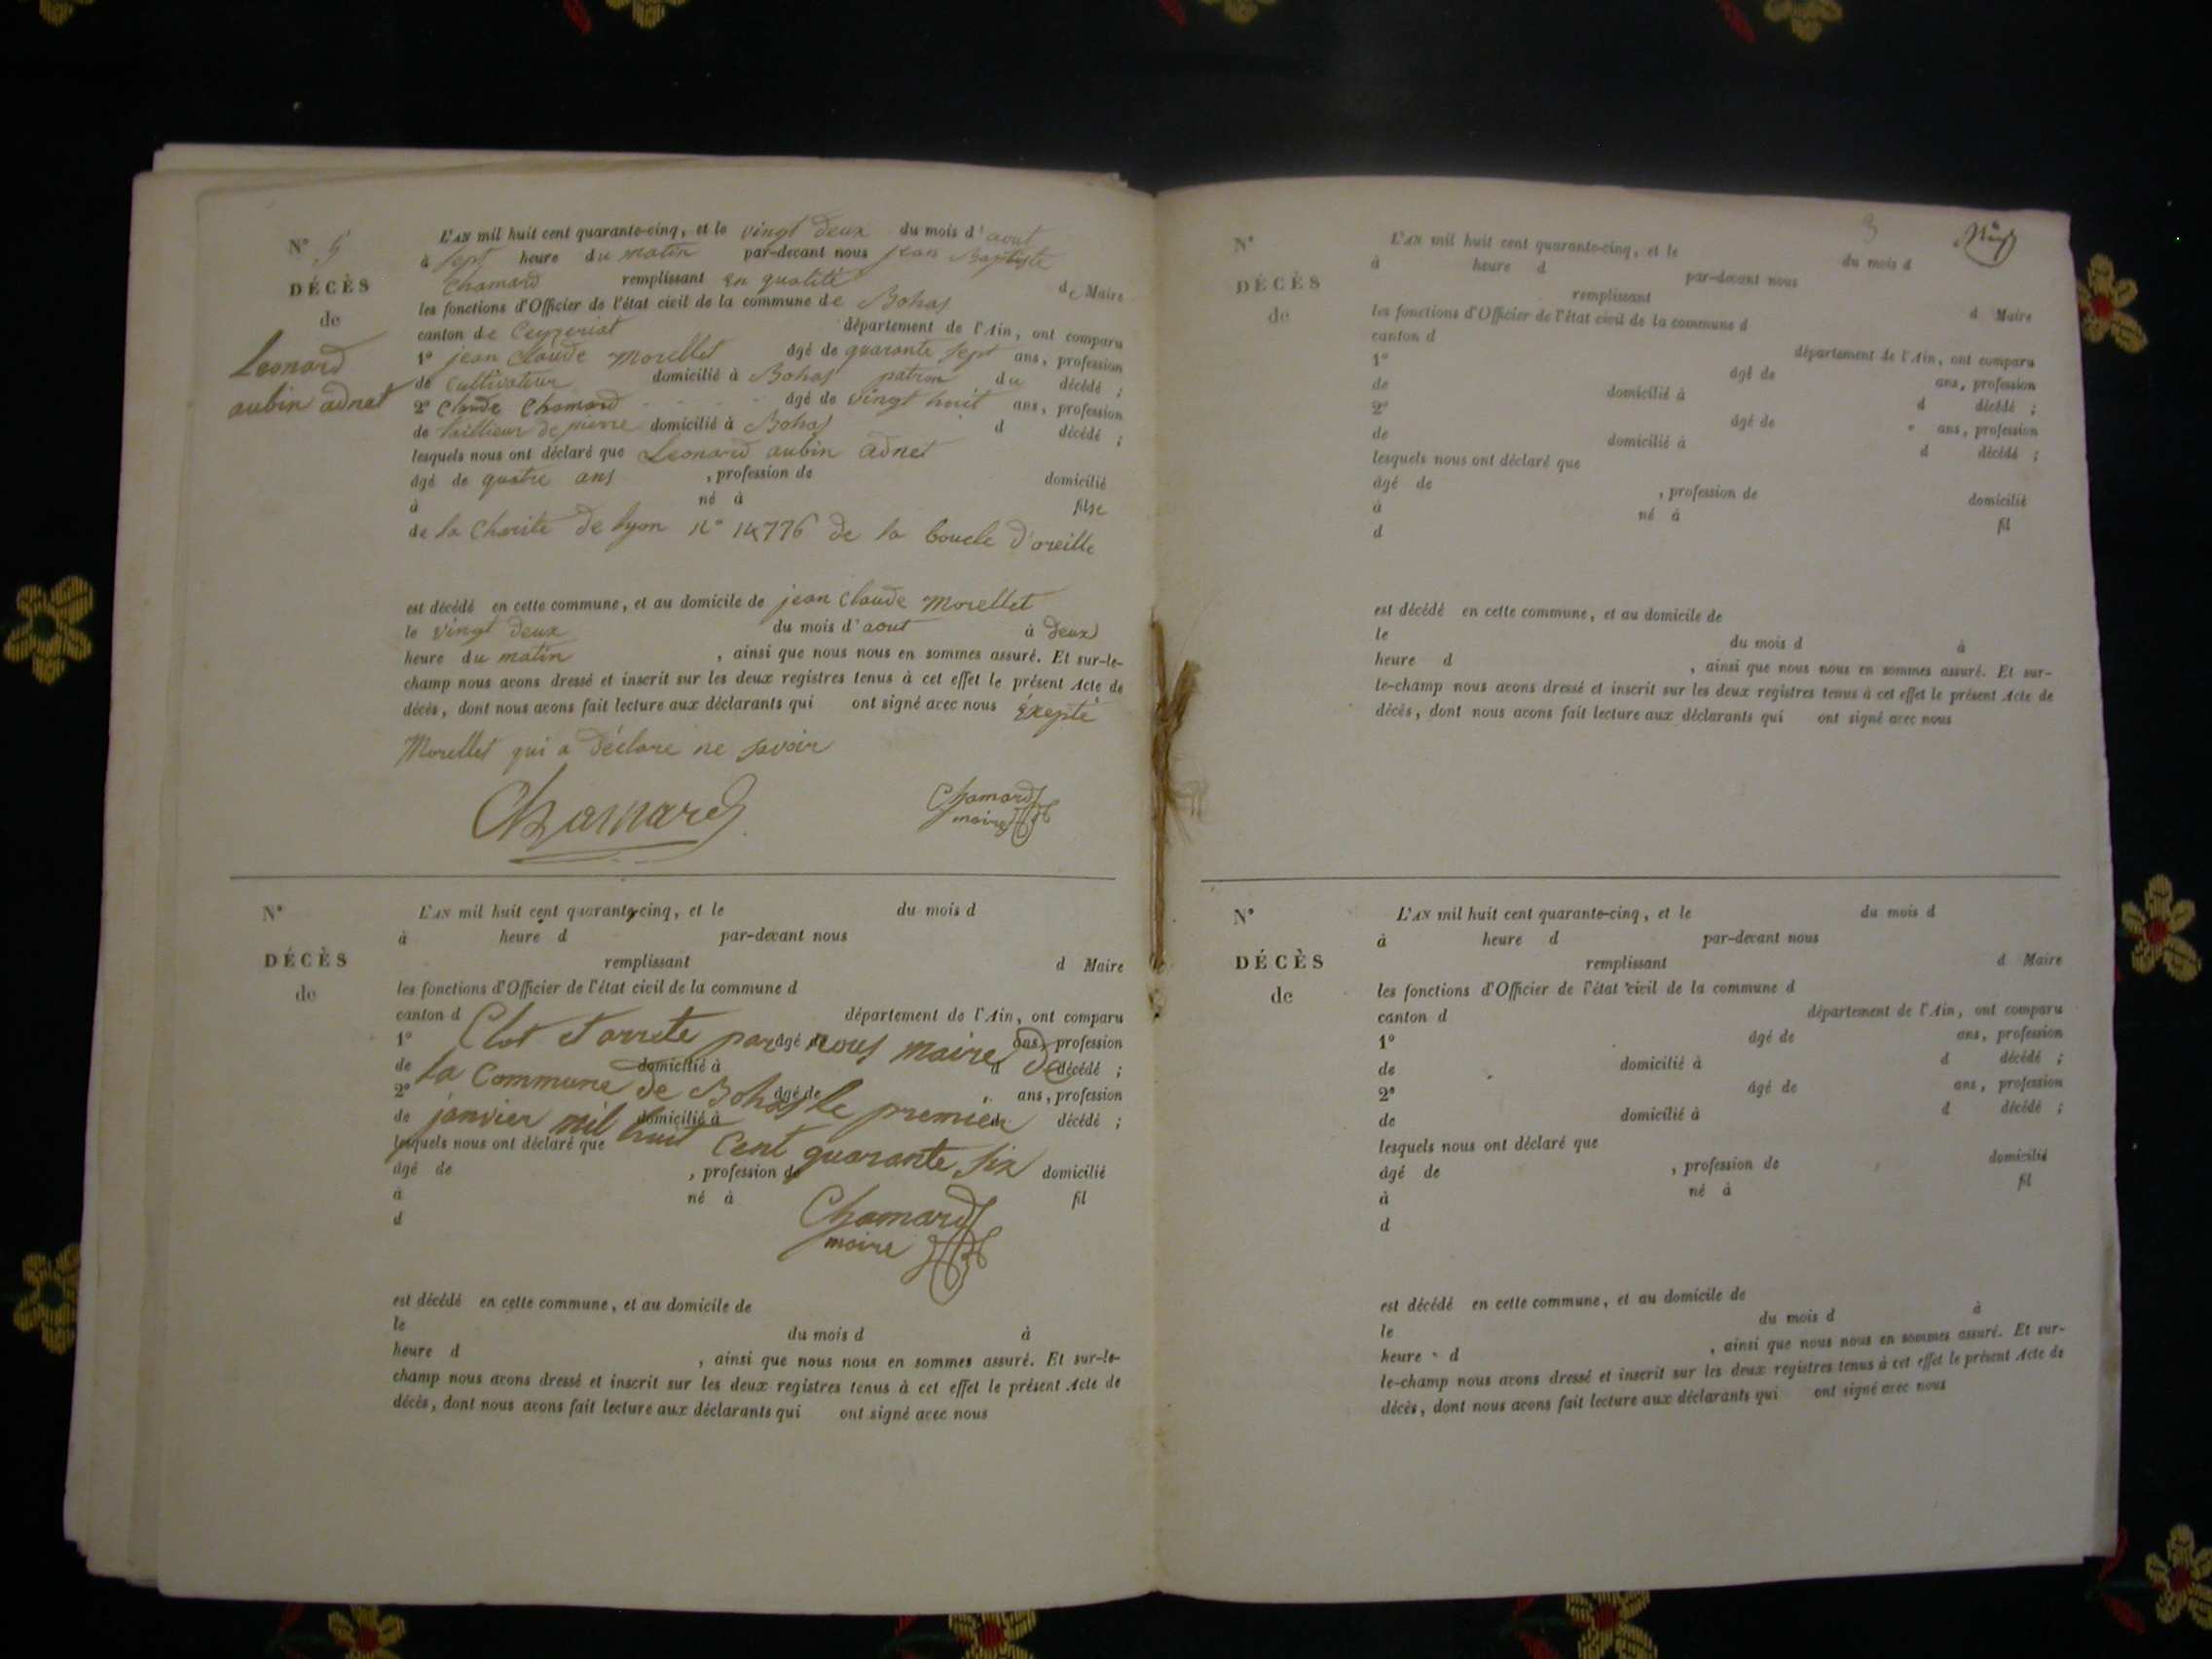 N° 5
DÉCÈS
de
Leonard
aubin adnet
L'AN mil huit cent quarante-cinq, et le vingt deux du mois d'aout
à sept heure du matin par-devant nous jean Baptiste
Chamard remplissant en qualité de Maire
les fonctions d'Officier de l'état civil de la commune de Bohas
canton de Ceyzeriat département de l'Ain, ont comparu
1° jean Claude Morellet âgé de quarante sept ans, profession
de Cultivateur domicilié à Bohas patron du décédé ;
2° Claude Chamard âgé de vingt huit ans, profession
de taillieur de pierre domicilié à Bohas d décédé ;
lesquels nous ont déclaré que Leonard aubin adnet
âgé de quatre ans , profession de domicilié
à né à fils
de la Charite de lyon N° 14776 de la boucle d'oreille
est décédé en cette commune, et au domicile de jean Claude Morellet
le vingt deux du mois d'aout à deux
heure du matin , ainsi que nous nous en sommes assuré. Et sur-le-
champ nous avons dressé et inscrit sur les deux registres tenus à cet effet le présent Acte de
décès, dont nous avons fait lecture aux déclarants qui ont signé avec nous éxepté
Morellet qui a déclare ne savoir
Chamard
Chamard
maire
N°
DÉCÈS
de
L'AN mil huit cent quarante-cinq, et le du mois d
à heure d par-devant nous
remplissant d Maire
les fonctions d'Officier de l'état civil de la commune d
canton d département de l'Ain, ont comparu
1° âgé de ans, profession
de domicilié à d décédé ;
2° âgé de ans, profession
de domicilié à d décédé ;
lesquels nous ont déclaré que
âgé de , profession de domicilié
à né à fil
d
Clot et arrete par nous maire de
la Commune de Bohas le premier
janvier mil huit Cent quarante six
Chamard
maire
est décédé en cette commune, et au domicile de
le du mois d à
heure d , ainsi que nous nous en sommes assuré. Et sur-le-
champ nous avons dressé et inscrit sur les deux registres tenus à cet effet le présent Acte de
décès, dont nous avons fait lecture aux déclarants qui ont signé avec nous
3
N°
DÉCÈS
de
L'AN mil huit cent quarante-cinq, et le du mois d
à heure d par-devant nous
remplissant d Maire
les fonctions d'Officier de l'état civil de la commune d
canton d département de l'Ain, ont comparu
1° âgé de ans, profession
de domicilié à d décédé ;
2° âgé de ans, profession
de domicilié à d décédé ;
lesquels nous ont déclaré que
âgé de , profession de domicilié
à né à fil
d
est décédé en cette commune, et au domicile de
le du mois d à
heure d , ainsi que nous nous en sommes assuré. Et sur-
le-champ nous avons dressé et inscrit sur les deux registres tenus à cet effet le présent Acte de
décès, dont nous avons fait lecture aux déclarants qui ont signé avec nous
N°
DÉCÈS
de
L'AN mil huit cent quarante-cinq, et le du mois d
à heure d par-devant nous
remplissant d Maire
les fonctions d'Officier de l'état civil de la commune d
canton d département de l'Ain, ont comparu
1° âgé de ans, profession
de domicilié à d décédé ;
2° âgé de ans, profession
de domicilié à d décédé ;
lesquels nous ont déclaré que
âgé de , profession de domicilié
à né à fil
d
est décédé en cette commune, et au domicile de
le du mois d à
heure d , ainsi que nous nous en sommes assuré. Et sur-
le-champ nous avons dressé et inscrit sur les deux registres tenus à cet effet le présent Acte de
décès, dont nous avons fait lecture aux déclarants qui ont signé avec nous